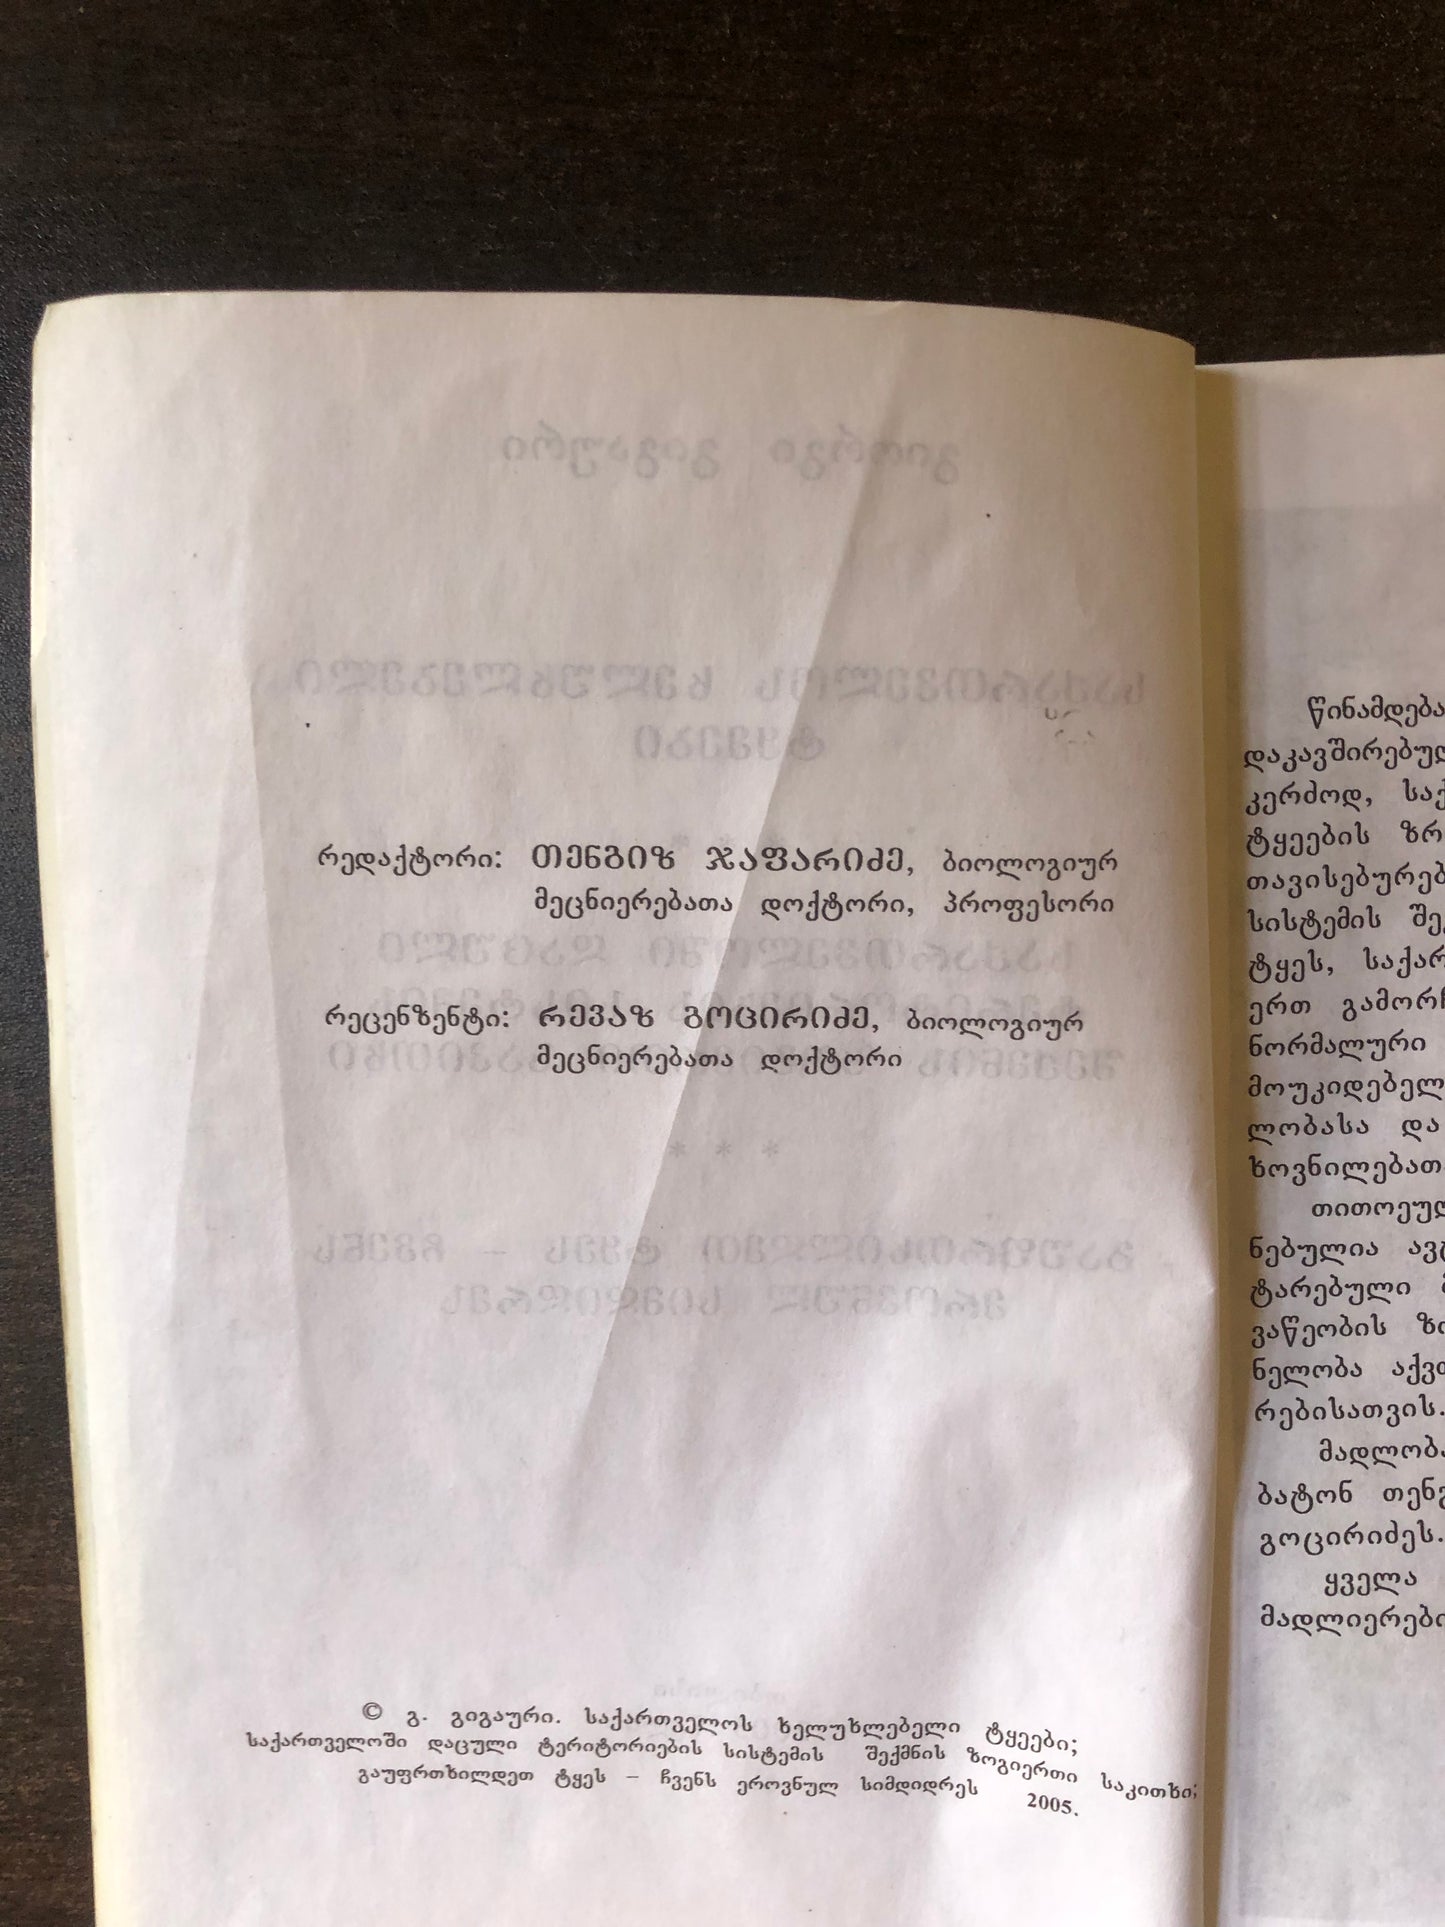 რედაქტორი: თენგიზ ჯაფარიძე, ბიოლოგიურ
მეცნიერებათა დოქტორი, პროფესორი
რეცენზენტი: რევაზ გოცირიძე, ბიოლოგიურ
მეცნიერებათა დოქტორი
© გ. გიგაური. საქართველოს ხელუხლებელი ტყეები;
საქართველოში დაცული ტერიტორიების სისტემის შექმნის ზოგიერთი საკითხი;
გაუფრთხილდეთ ტყეს – ჩვენს ეროვნულ სიმდიდრეს 2005.
წინამდება
დაკავშირებულ
კერძოდ, საქ
ტყეების ზრ
თავისებურებ
სისტემის შე
ტყეს, საქარ
ერთ გამორჩ
ნორმალური
მოუკიდებელ
ლობასა და
ხოვნილებათ
თითოეულ
ნებულია ავ
ტარებული
ვაწეობის ზო
ნელობა აქვ
რებისათვის.
მადლობა
ბატონ თენგ
გოცირიძეს.
ყველა
მადლიერები